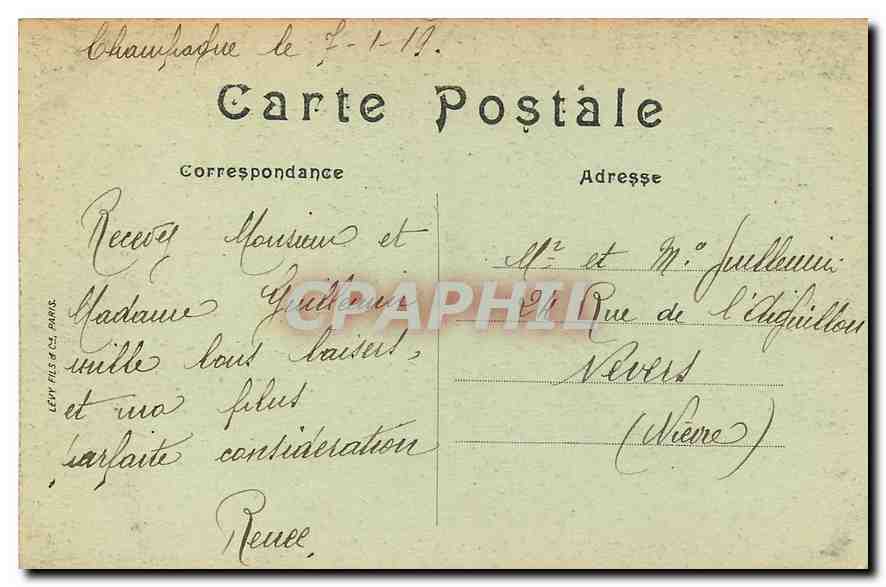 Champagne le 7-1-19.
Carte Postale
Correspondance
Adresse
Recevez Monsieur et
Madame Guillemin
mille bons baisers,
et ma plus
parfaite consideration
Renee
Mr et Me Guillemin
24 Rue de l'Aiguillon
Nevers
(Nièvre)
LÉVY FILS & Cie, PARIS.
CPARHIL